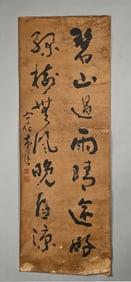 碧山過雨晴逾好
綠樹無風晚自涼